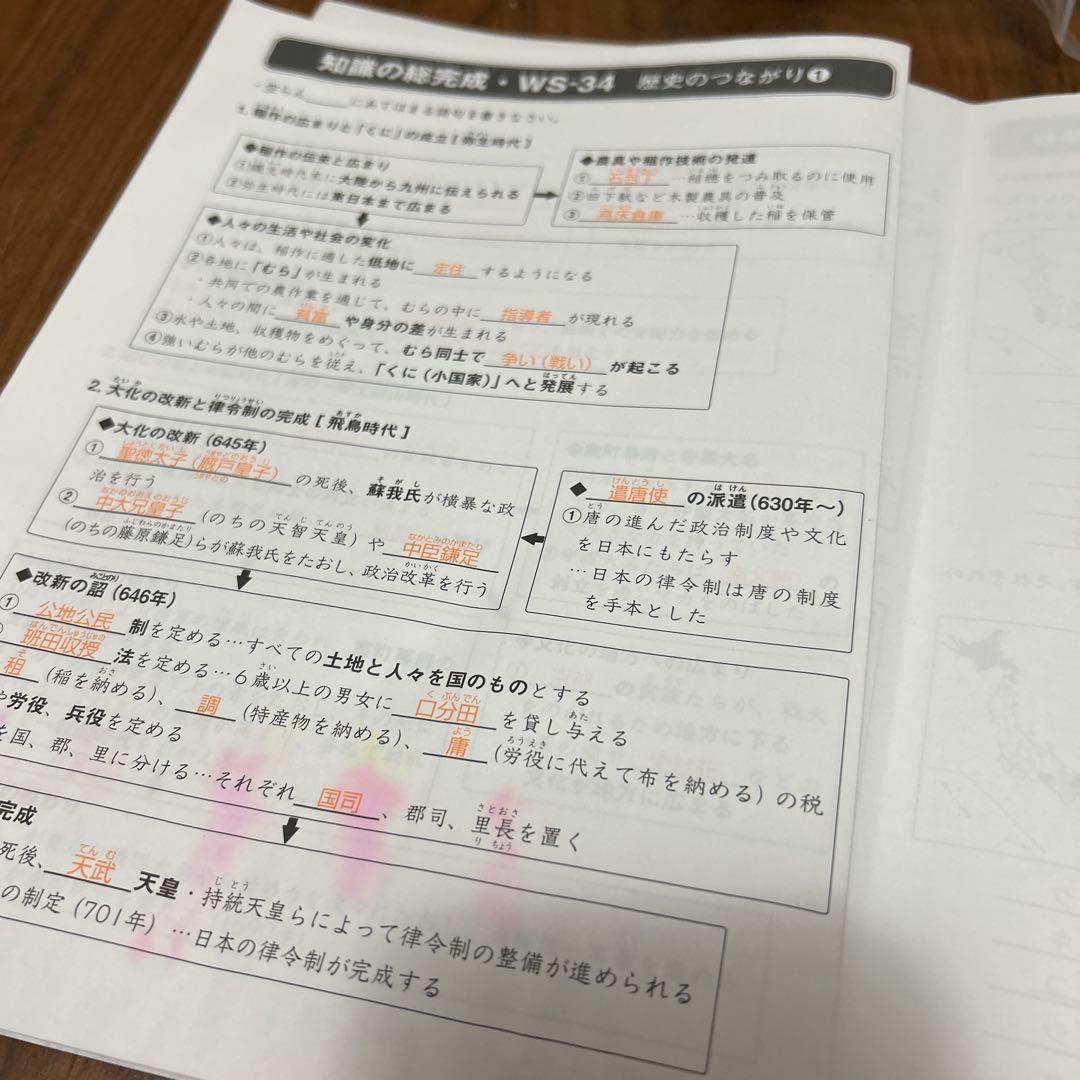 知識の総完成・WS-34 歴史のつながり❶
にあてはまる語句を書きなさい。
1. 稲作の広まりと「くに」の成立 [弥生時代]
◆稲作の伝来と広まり
①縄文時代末に大陸から九州に伝えられる
②弥生時代には東日本まで広まる
◆農具や稲作技術の発達
① 石包丁 …稲穂をつみ取るのに使用
②田下駄など木製農具の普及
③ 高床倉庫 …収穫した稲を保管
◆人々の生活や社会の変化
①人々は、稲作に適した低地に 定住 するようになる
②各地に「むら」が生まれる
・共同での農作業を通じて、むらの中に 指導者 が現れる
・人々の間に 貧富 や身分の差が生まれる
③水や土地、収穫物をめぐって、むら同士で 争い(戦い) が起こる
④強いむらが他のむらを従え、「くに(小国家)」へと発展する
2. 大化の改新と律令制の完成 [飛鳥時代]
◆大化の改新(645年)
① 聖徳太子(厩戸皇子) の死後、蘇我氏が横暴な政
治を行う
② 中大兄皇子 (のちの天智天皇)や 中臣鎌足
(のちの藤原鎌足)らが蘇我氏をたおし、政治改革を行う
◆ 遣唐使 の派遣(630年〜)
①唐の進んだ政治制度や文化
を日本にもたらす
…日本の律令制は唐の制度
を手本とした
◆改新の詔(646年)
① 公地公民 制を定める…すべての土地と人々を国のものとする
班田収授 法を定める…6歳以上の男女に 口分田 を貸し与える
租 (稲を納める)、 調 (特産物を納める)、 庸 (労役に代えて布を納める)の税
や労役、兵役を定める
を国、郡、里に分ける…それぞれ 国司 、郡司、里長を置く
完成
死後、 天武 天皇・持統天皇らによって律令制の整備が進められる
の制定(701年)…日本の律令制が完成する